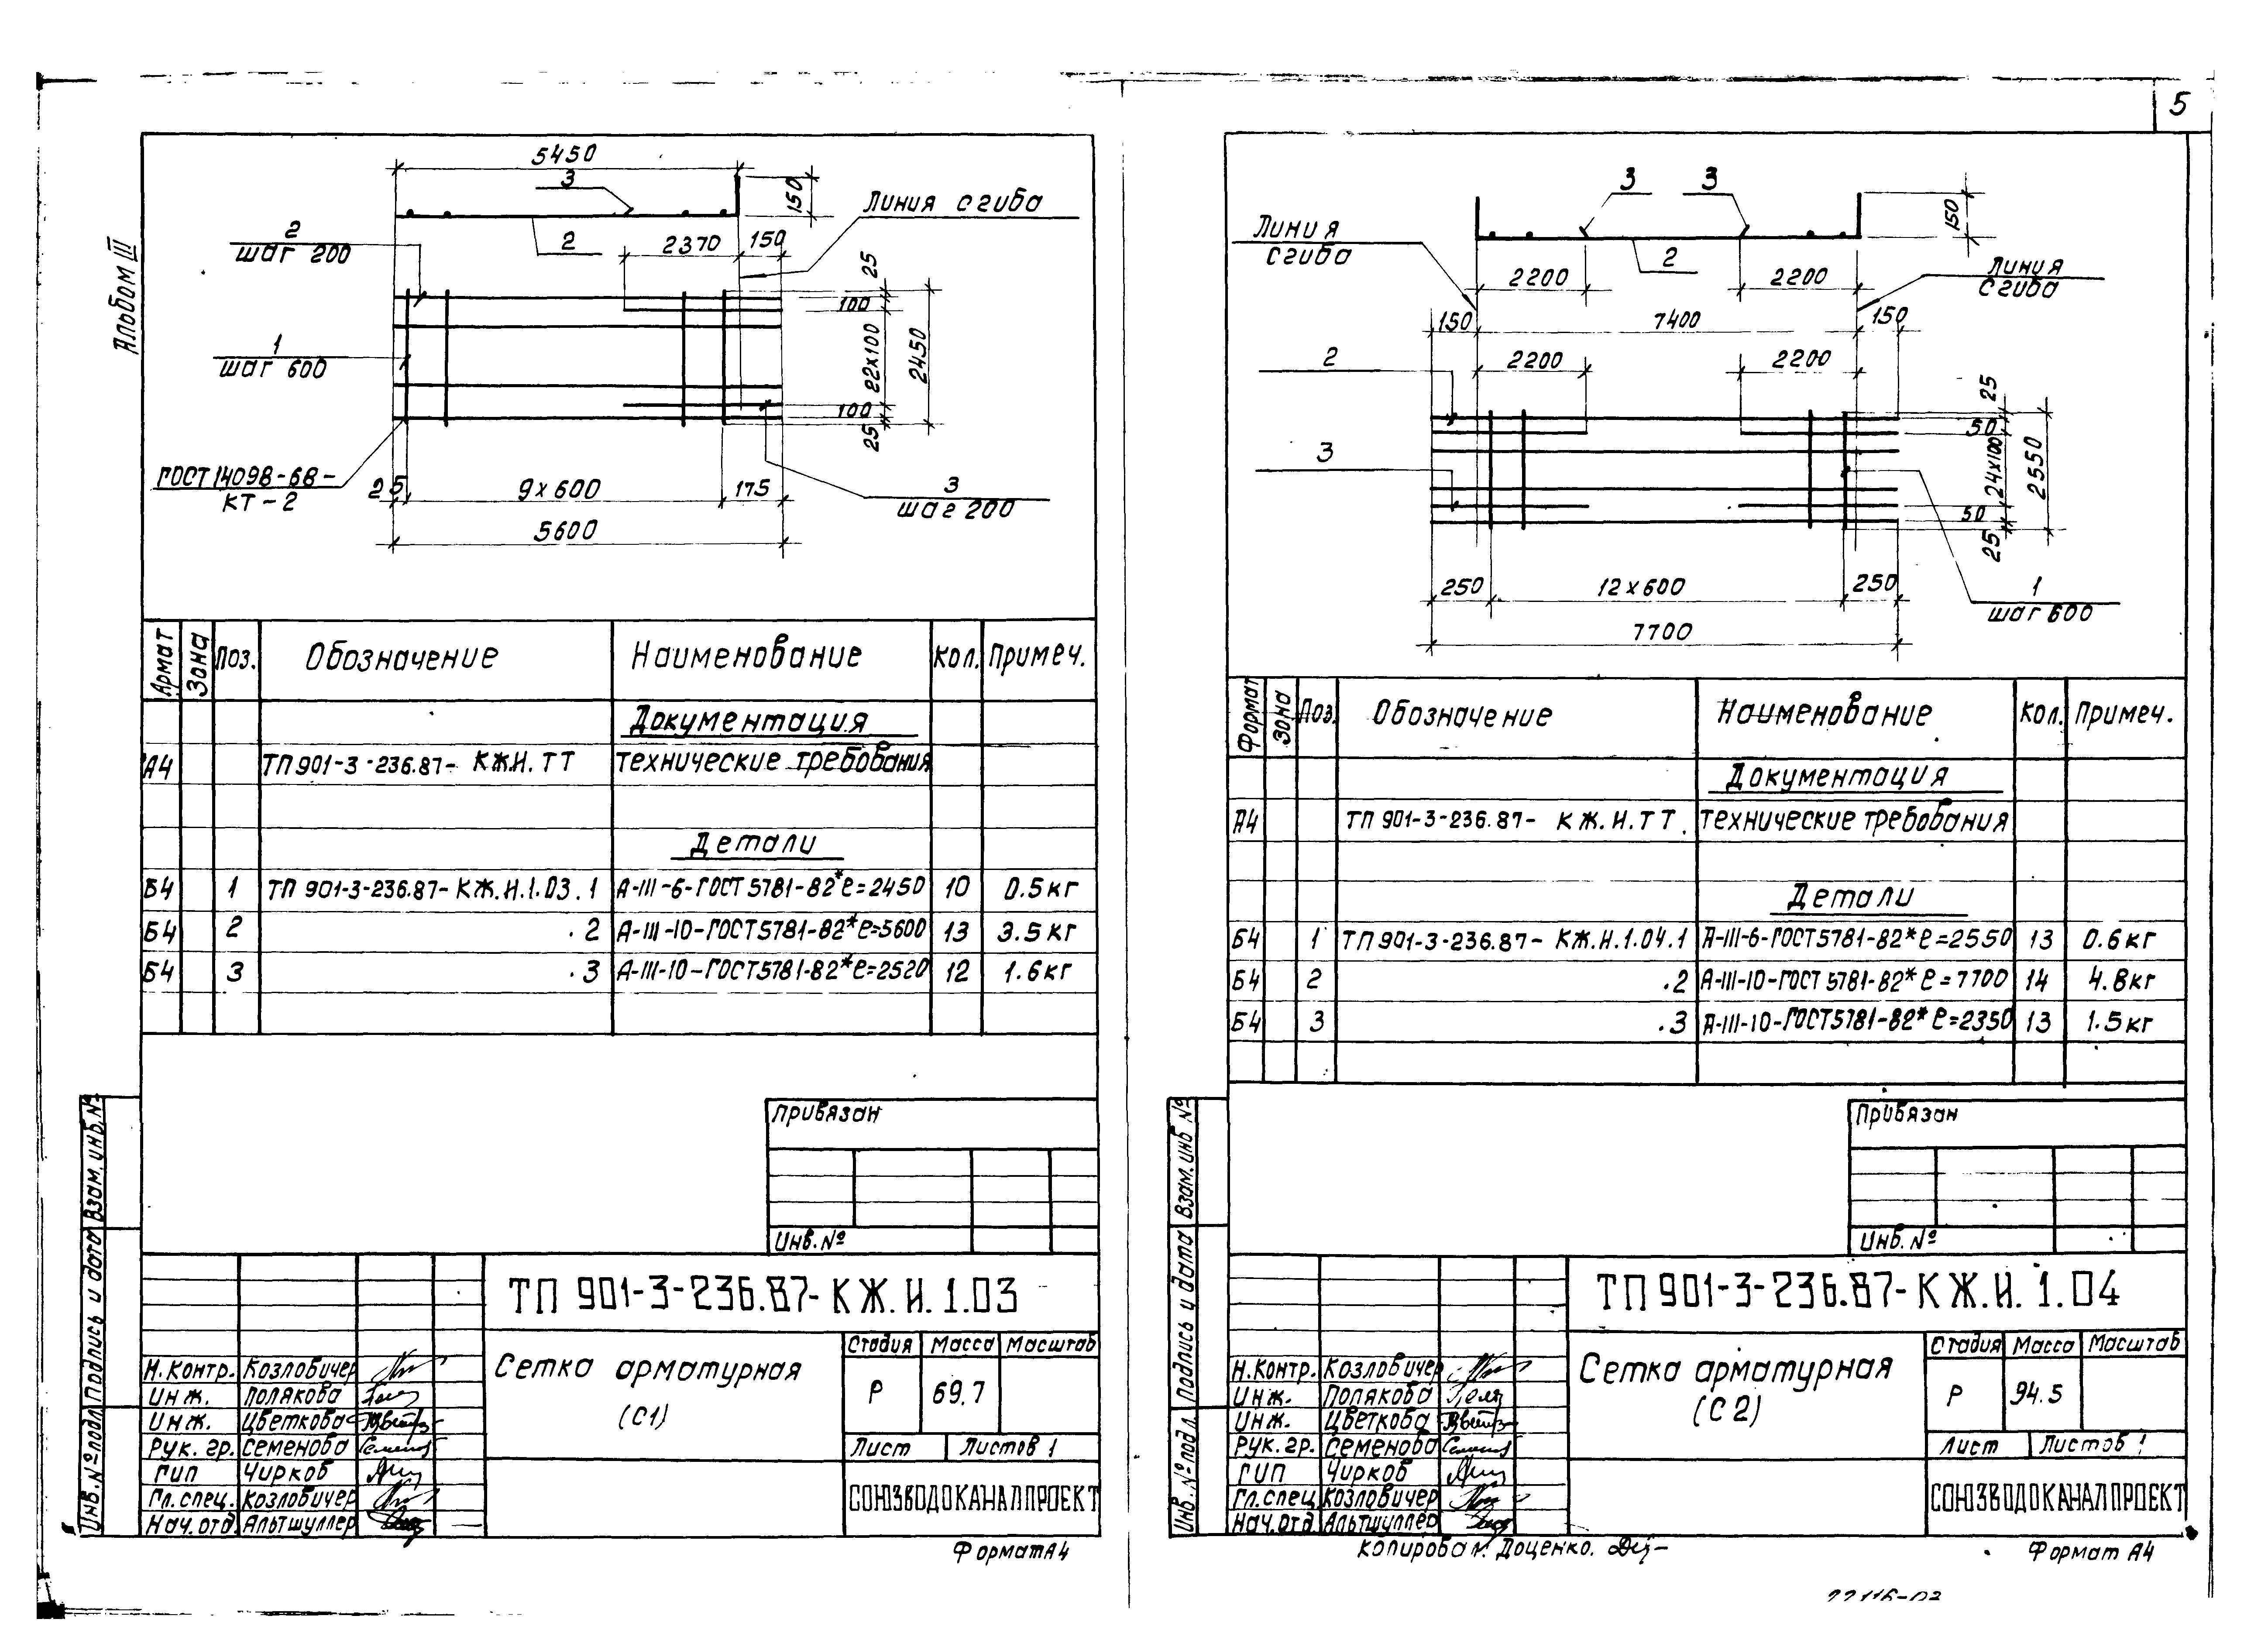 5
Альбом III
5450
3
150
Линия сгиба
2
шаг 200
2
2370
150
25
100
22х100
2450
1
шаг 600
100
25
ГОСТ 14098-68-
КТ-2
25
9х600
175
3
шаг 200
5600
Армат
Зона
Поз.
Обозначение
Наименование
Кол.
Примеч.
Документация
А4 ТП 901-3-236.87- КЖ.И.ТТ Технические требования
Детали
Б4 1 ТП 901-3-236.87-КЖ.И.1.03.1 А-III-6-ГОСТ 5781-82* ℓ=2450 10 0.5кг
Б4 2 .2 А-III-10-ГОСТ 5781-82* ℓ=5600 13 3.5кг
Б4 3 .3 А-III-10-ГОСТ 5781-82* ℓ=2520 12 1.6кг
Привязан
Инв. №
Взам. инв. №
Подпись и дата
Инв. № подл.
ТП 901-3-236.87-КЖ.И.1.03
Сетка арматурная
(С1)
Стадия Масса Масштаб
Р 69.7
Лист Листов 1
СОЮЗВОДОКАНАЛПРОЕКТ
Н.контр. Козловичер
Инж. Полякова
Инж. Цветкова
Рук. гр. Семенова
ГИП Чирков
Гл.спец. Козловичер
Нач.отд. Альтшуллер
Формат А4
3 3
150
Линия
сгиба
2
2200
2200
Линия
сгиба
150
7400
150
2
2200
2200
25
50
24х100
2550
3
50
25
250
12х600
250
1
шаг 600
7700
Формат
Зона
Поз.
Обозначение
Наименование
Кол.
Примеч.
Документация
А4 ТП 901-3-236.87- КЖ.И.ТТ. Технические требования
Детали
Б4 1 ТП 901-3-236.87- КЖ.И.1.04.1 А-III-6-ГОСТ 5781-82* ℓ=2550 13 0.6кг
Б4 2 .2 А-III-10-ГОСТ 5781-82* ℓ=7700 14 4.8кг
Б4 3 .3 А-III-10-ГОСТ 5781-82* ℓ=2350 13 1.5кг
Привязан
Инв. №
Взам. инв №
Подпись и дата
Инв. № подл.
ТП 901-3-236.87-КЖ.И.1.04
Сетка арматурная
(С2)
Стадия Масса Масштаб
Р 94.5
Лист Листов 1
СОЮЗВОДОКАНАЛПРОЕКТ
Н.контр. Козловичер
Инж. Полякова
Инж. Цветкова
Рук. гр. Семенова
ГИП Чирков
Гл.спец. Козловичер
Нач.отд. Альтшуллер
Копировал: Доценко.
Формат А4
22116-03